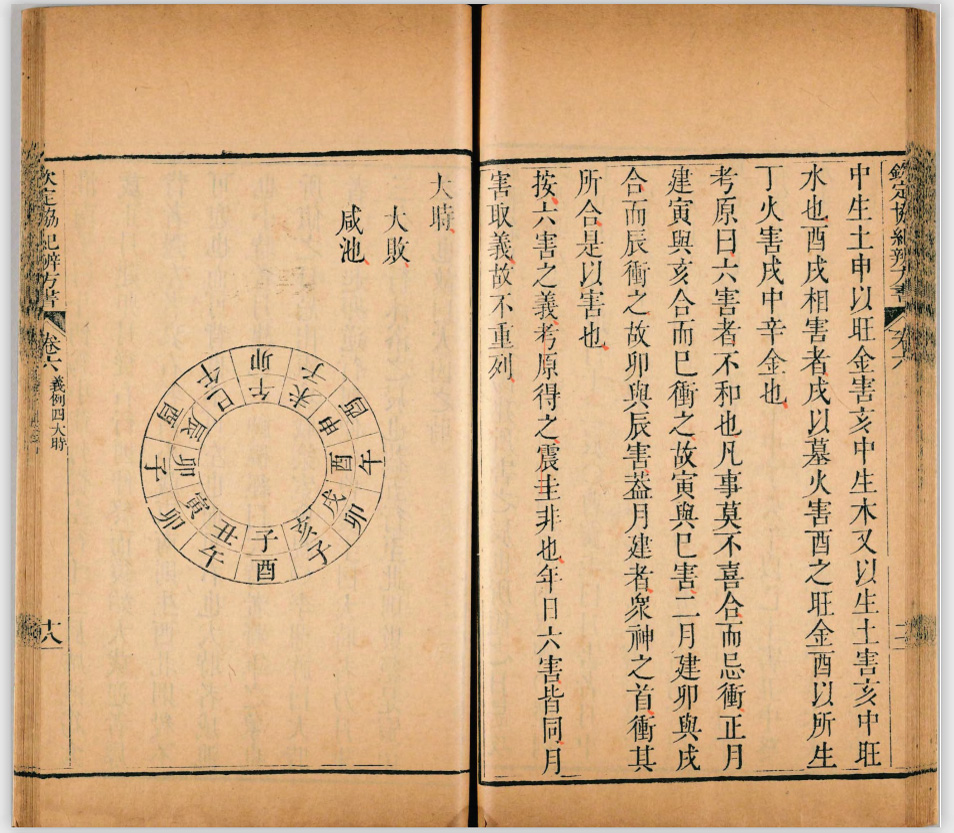 欽定協紀辨方書 卷六
中生土申以旺金害亥中生木又以生土害亥中旺
水也酉戌相害者戌以墓火害酉之旺金酉以所生
丁火害戌中辛金也
考原曰六害者不和也凡事莫不喜合而忌衝正月
建寅與亥合而巳衝之故寅與巳害二月建卯與戌
合而辰衝之故卯與辰害葢月建者衆神之首衝其
所合是以害也
按六害之義考原得之震圭非也年日六害皆同月
害取義故不重列
大時
大敗
咸池
子 丑 寅 卯 辰 巳 午 未 申 酉 戌 亥
酉 午 卯 子 酉 午 卯 子 酉 午 卯 子
欽定協紀辨方書 卷六 義例四大時